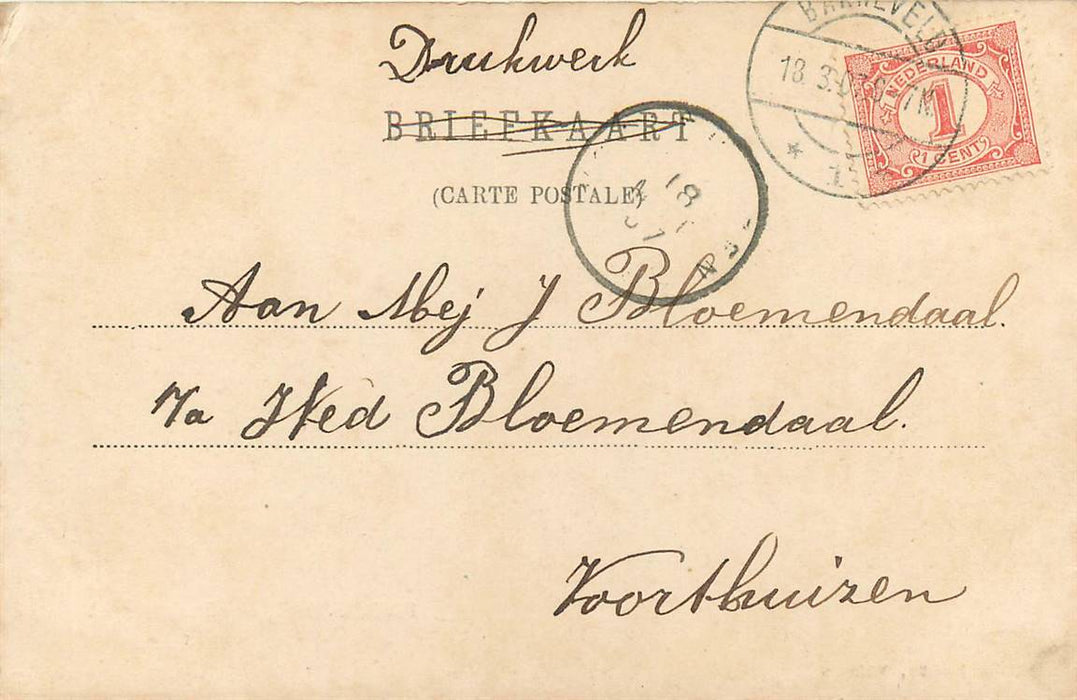 Drukwerk
BRIEFKAART
(CARTE POSTALE)
BARNEVELD
18 3.07
NEDERLAND
1
1 CENT
18
4
07
Aan Mej J Bloemendaal.
Wed Bloemendaal.
Voorthuizen